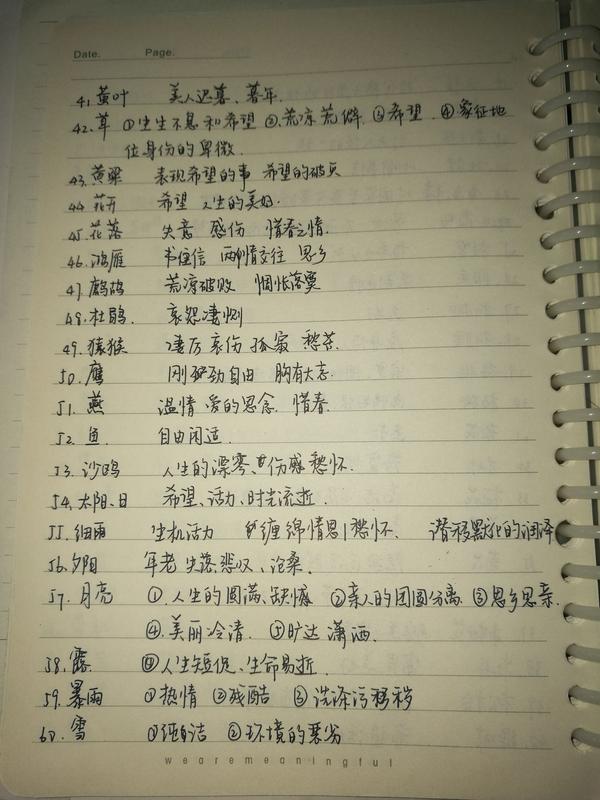 Date.  Page.
41.黄叶 美人迟暮、暮年.
42.草 ①生生不息和希望 ②.荒凉荒僻. ③希望. ④象征地
位身份的卑微.
43.黄粱 表现希望的事 希望的破灭
44.花开 希望 人生的美好.
45.花落 失意 感伤 惜春之情.
46.鸿雁 书信 两情交往 思乡
47.鹧鸪 荒凉破败 惆怅落寞
48.杜鹃. 哀怨凄恻
49.猿猴 凄厉哀伤 孤寂 愁苦.
50.鹰 刚劲自由 胸有大志.
51.燕 温情 爱的思念. 惜春.
52.鱼. 自由闲适.
53.沙鸥 人生的漂零、伤感愁怀.
54.太阳、日 希望、活力、时光流逝.
55.细雨 生机活力 缠绵情思|愁怀. 潜移默化的润泽
56.夕阳 年老 失落悲叹、沧桑.
57.月亮 ①.人生的圆满、缺憾 ②亲人的团圆分离 ③思乡思亲.
④.美丽冷清. ⑤旷达 潇洒.
58.露 人生短促、生命易逝.
59.暴雨 ①热情 ②残酷 ③洗涤污秽
60.雪 ①纯洁 ②环境的恶劣
wearemeaningful